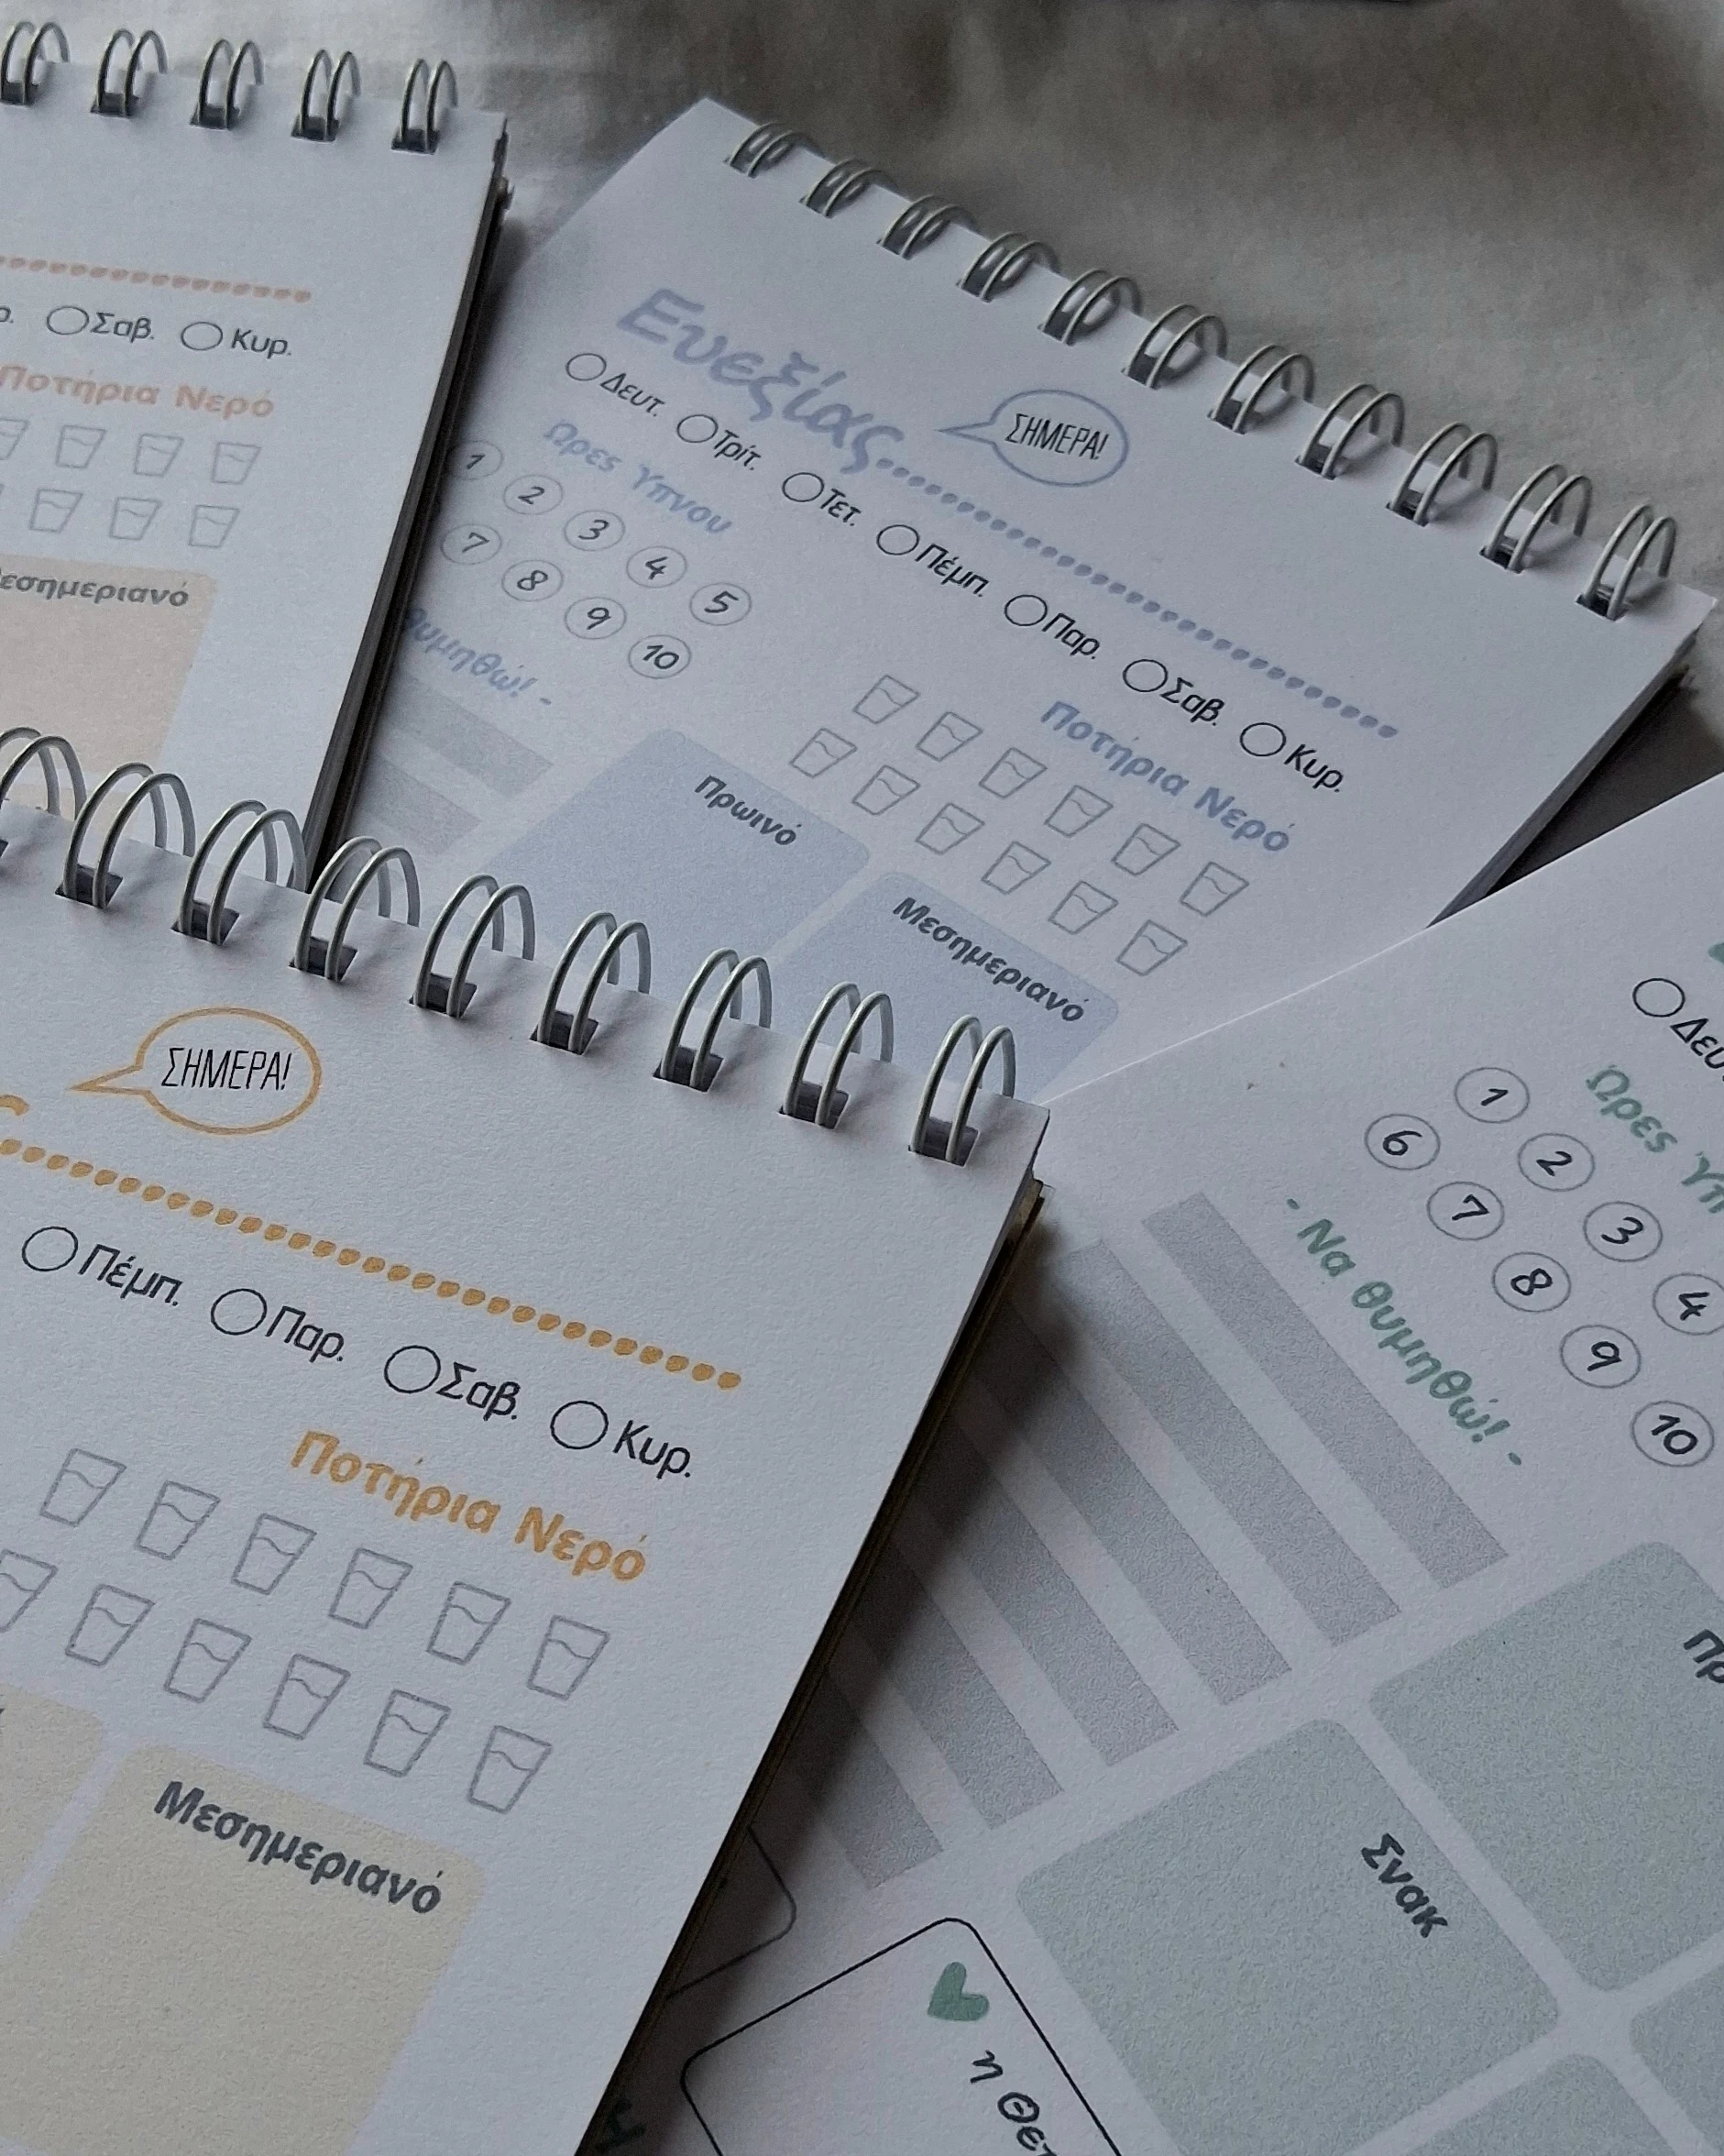 Σαβ. Κυρ.
Ποτήρια Νερό
Ευεξίας
ΣΗΜΕΡΑ!
Δευτ. Τρίτ. Τετ. Πέμπ. Παρ. Σαβ. Κυρ.
Ώρες Ύπνου
1 2 3 4 5
7 8 9 10
Ποτήρια Νερό
Πρωινό
Μεσημεριανό
ΣΗΜΕΡΑ!
Πέμπ. Παρ. Σαβ. Κυρ.
Ποτήρια Νερό
Μεσημεριανό
Ώρες
1 2 3 4
6 7 8 9 10
- Να θυμηθώ! -
Σνακ
η